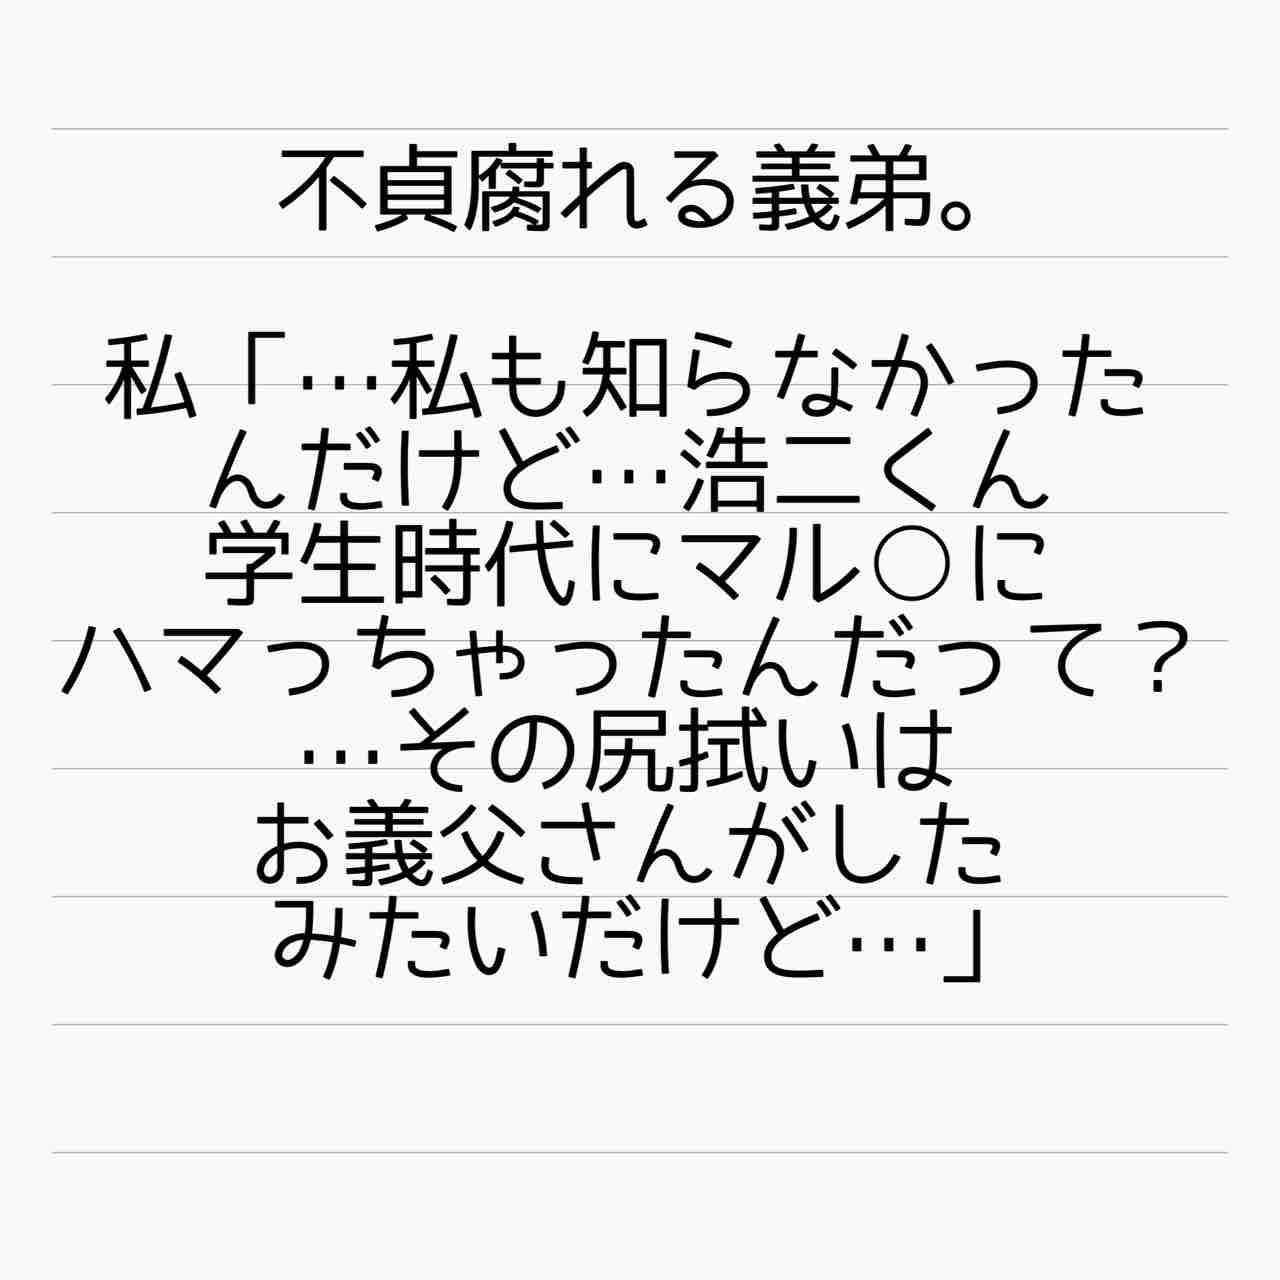 不貞腐れる義弟。
私「…私も知らなかった
んだけど…浩二くん
学生時代にマル○に
ハマっちゃったんだって？
…その尻拭いは
お義父さんがした
みたいだけど…」